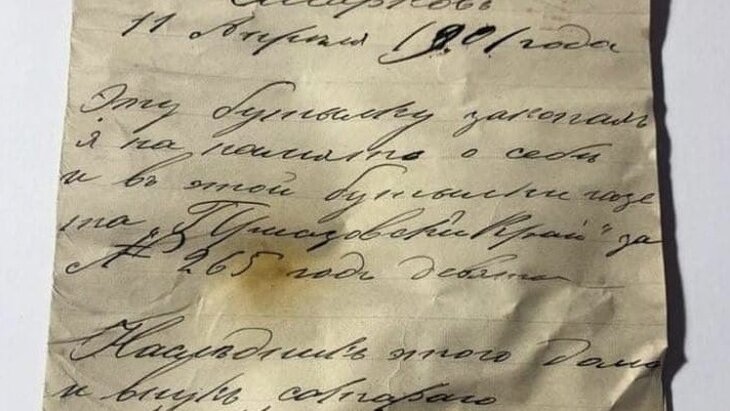 11 Апреля 1901 года
Эту бутылку закопалъ
я на память о себѣ
и въ этой бутылки газе
та „Приазовскій Край“ за
№ 265 годъ девяти
Наслѣдникъ этого дома
и внукъ